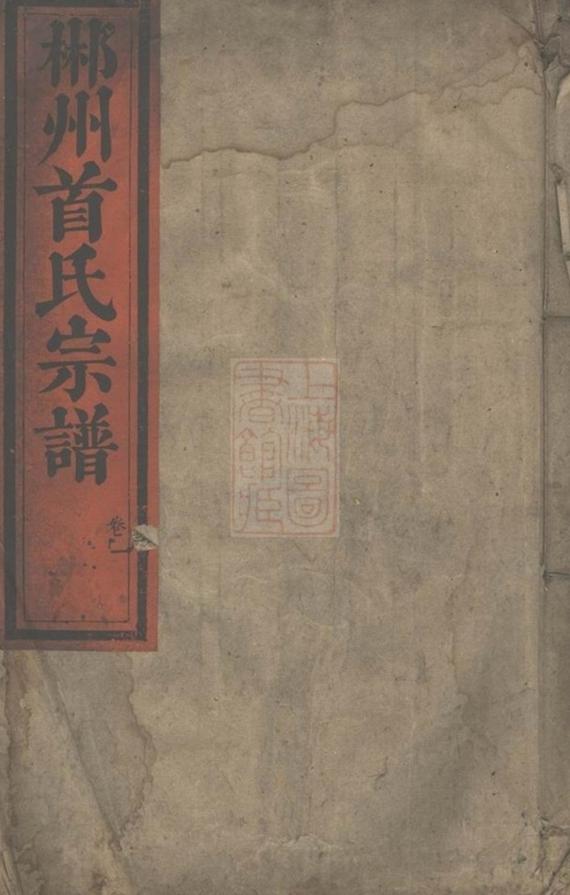 郴州首氏宗譜
上海圖
書館藏